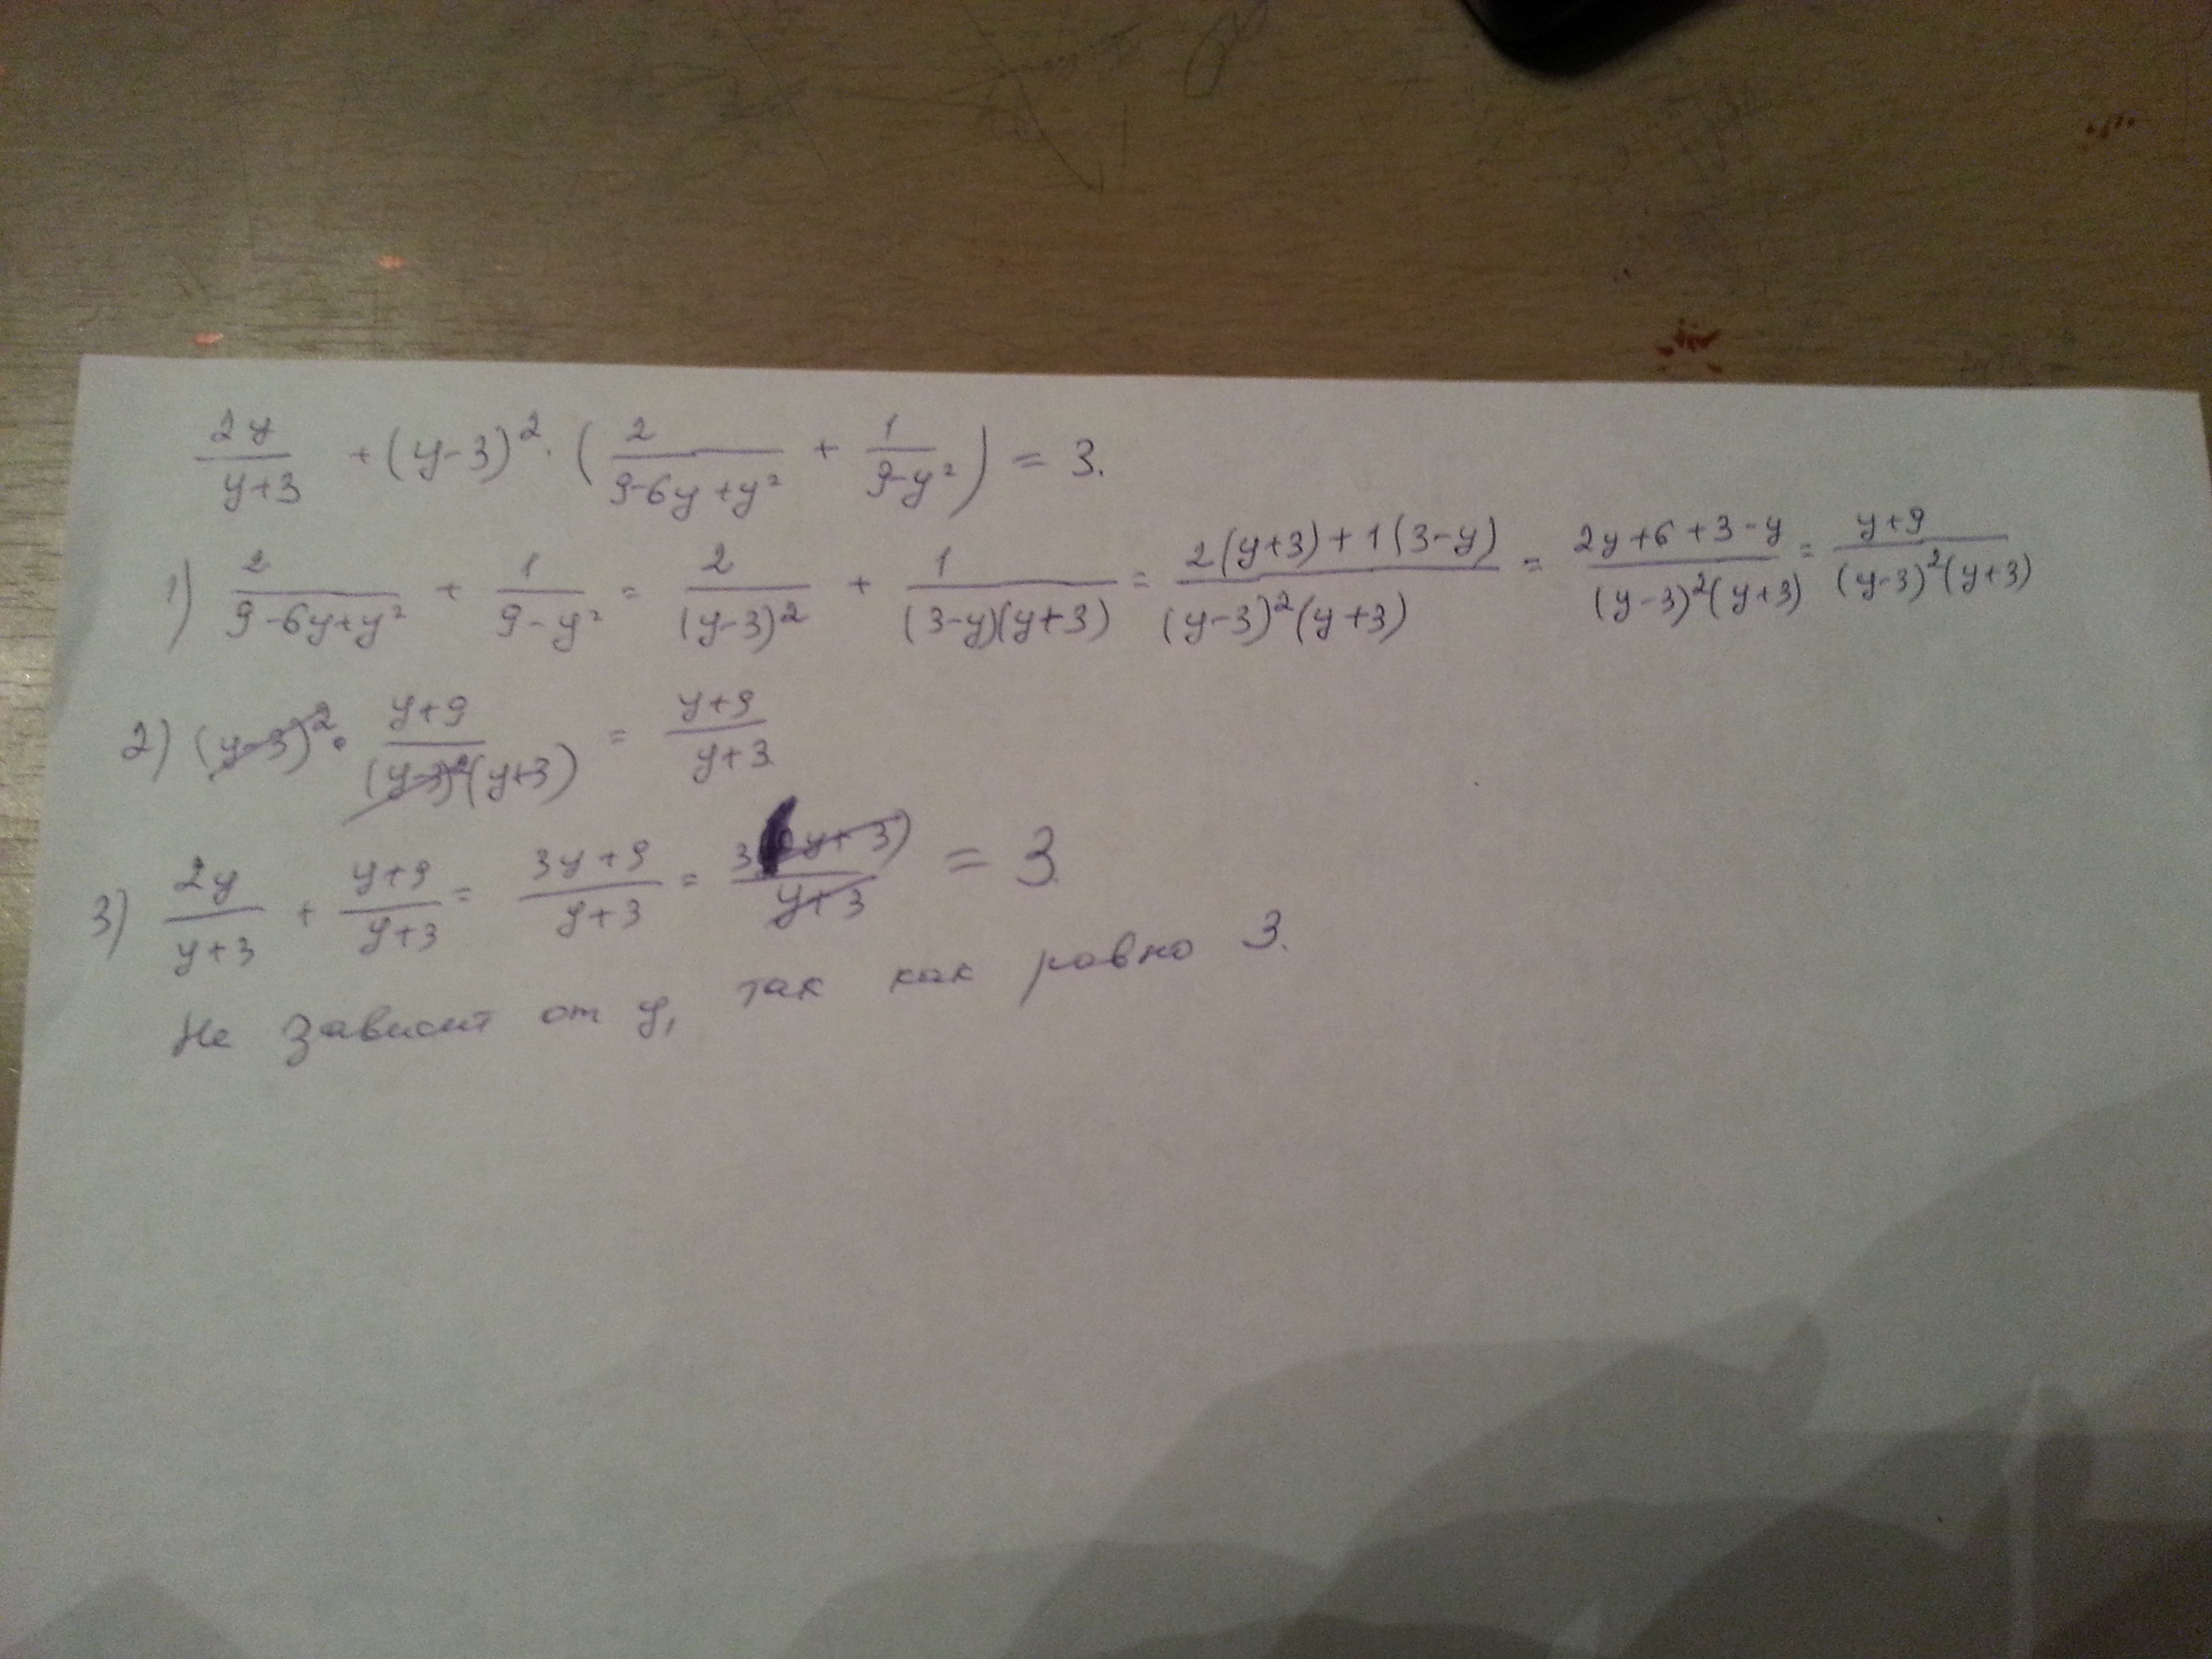 2y/(y+3) + (y-3)² · (2/(9-6y+y²) + 1/(9-y²)) = 3.
1) 2/(9-6y+y²) + 1/(9-y²) = 2/(y-3)² + 1/((3-y)(y+3)) = (2(y+3)+1(3-y))/((y-3)²(y+3)) = (2y+6+3-y)/((y-3)²(y+3)) = (y+9)/((y-3)²(y+3))
2) (y-3)² · (y+9)/((y-3)²(y+3)) = (y+9)/(y+3)
3) 2y/(y+3) + (y+9)/(y+3) = (3y+9)/(y+3) = 3(y+3)/(y+3) = 3
Не зависит от y, так как равно 3.